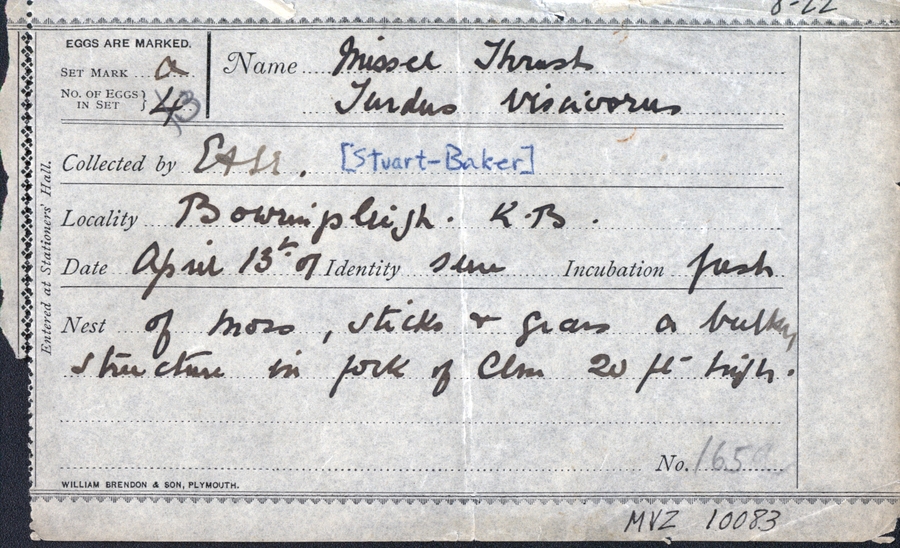 8-22
EGGS ARE MARKED.
SET MARK a
NO. OF EGGS IN SET } 4 3
Name Missel Thrush
Turdus Viscivorus
Collected by [Stuart-Baker]
Locality K.B.
Date April 13th 07 Identity sure Incubation fresh
Nest of moss, sticks & grass a bulky
structure in fork of Elm 20 ft high.
No. 165
WILLIAM BRENDON & SON, PLYMOUTH.
Entered at Stationers' Hall.
MVZ 10083